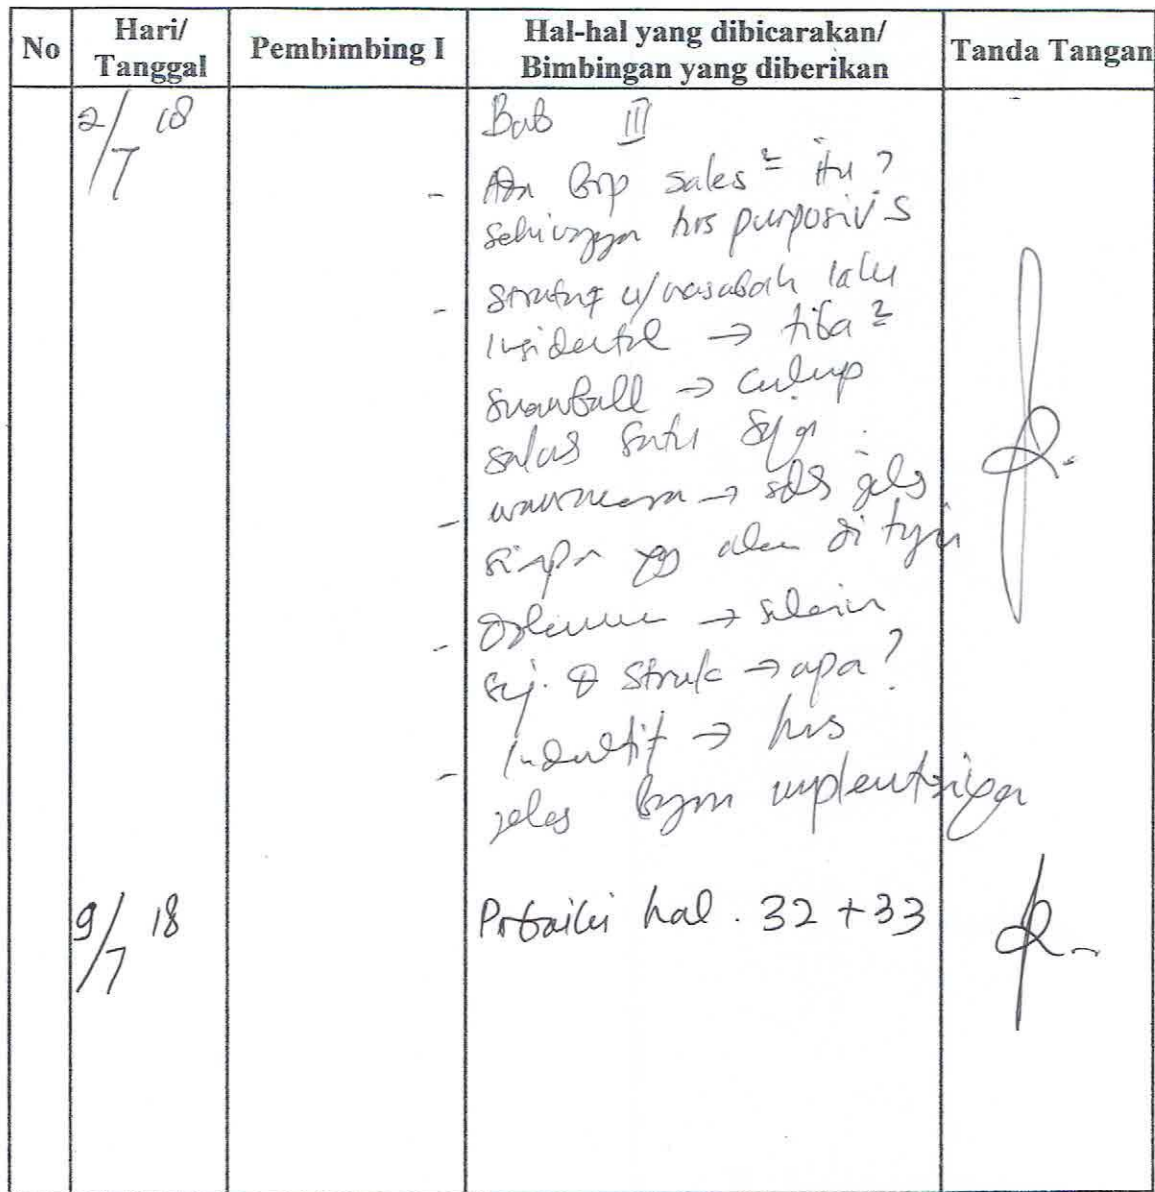 No
Hari/
Tanggal
Pembimbing I
Hal-hal yang dibicarakan/
Bimbingan yang diberikan
Tanda Tangan
2/7 18
Bab III
- Ada brp sales² itu?
sehingga hrs purposive s
- u/ nasabah lalu
insidental → tiba²
snowball → cukup
salah satu saja.
- wawancara → sdh jels
siapa yg akan di
- → selain
sej. & struk → apa?
- Induktif → hrs
jelas bgm
9/7 18
Prbaiki hal. 32 + 33